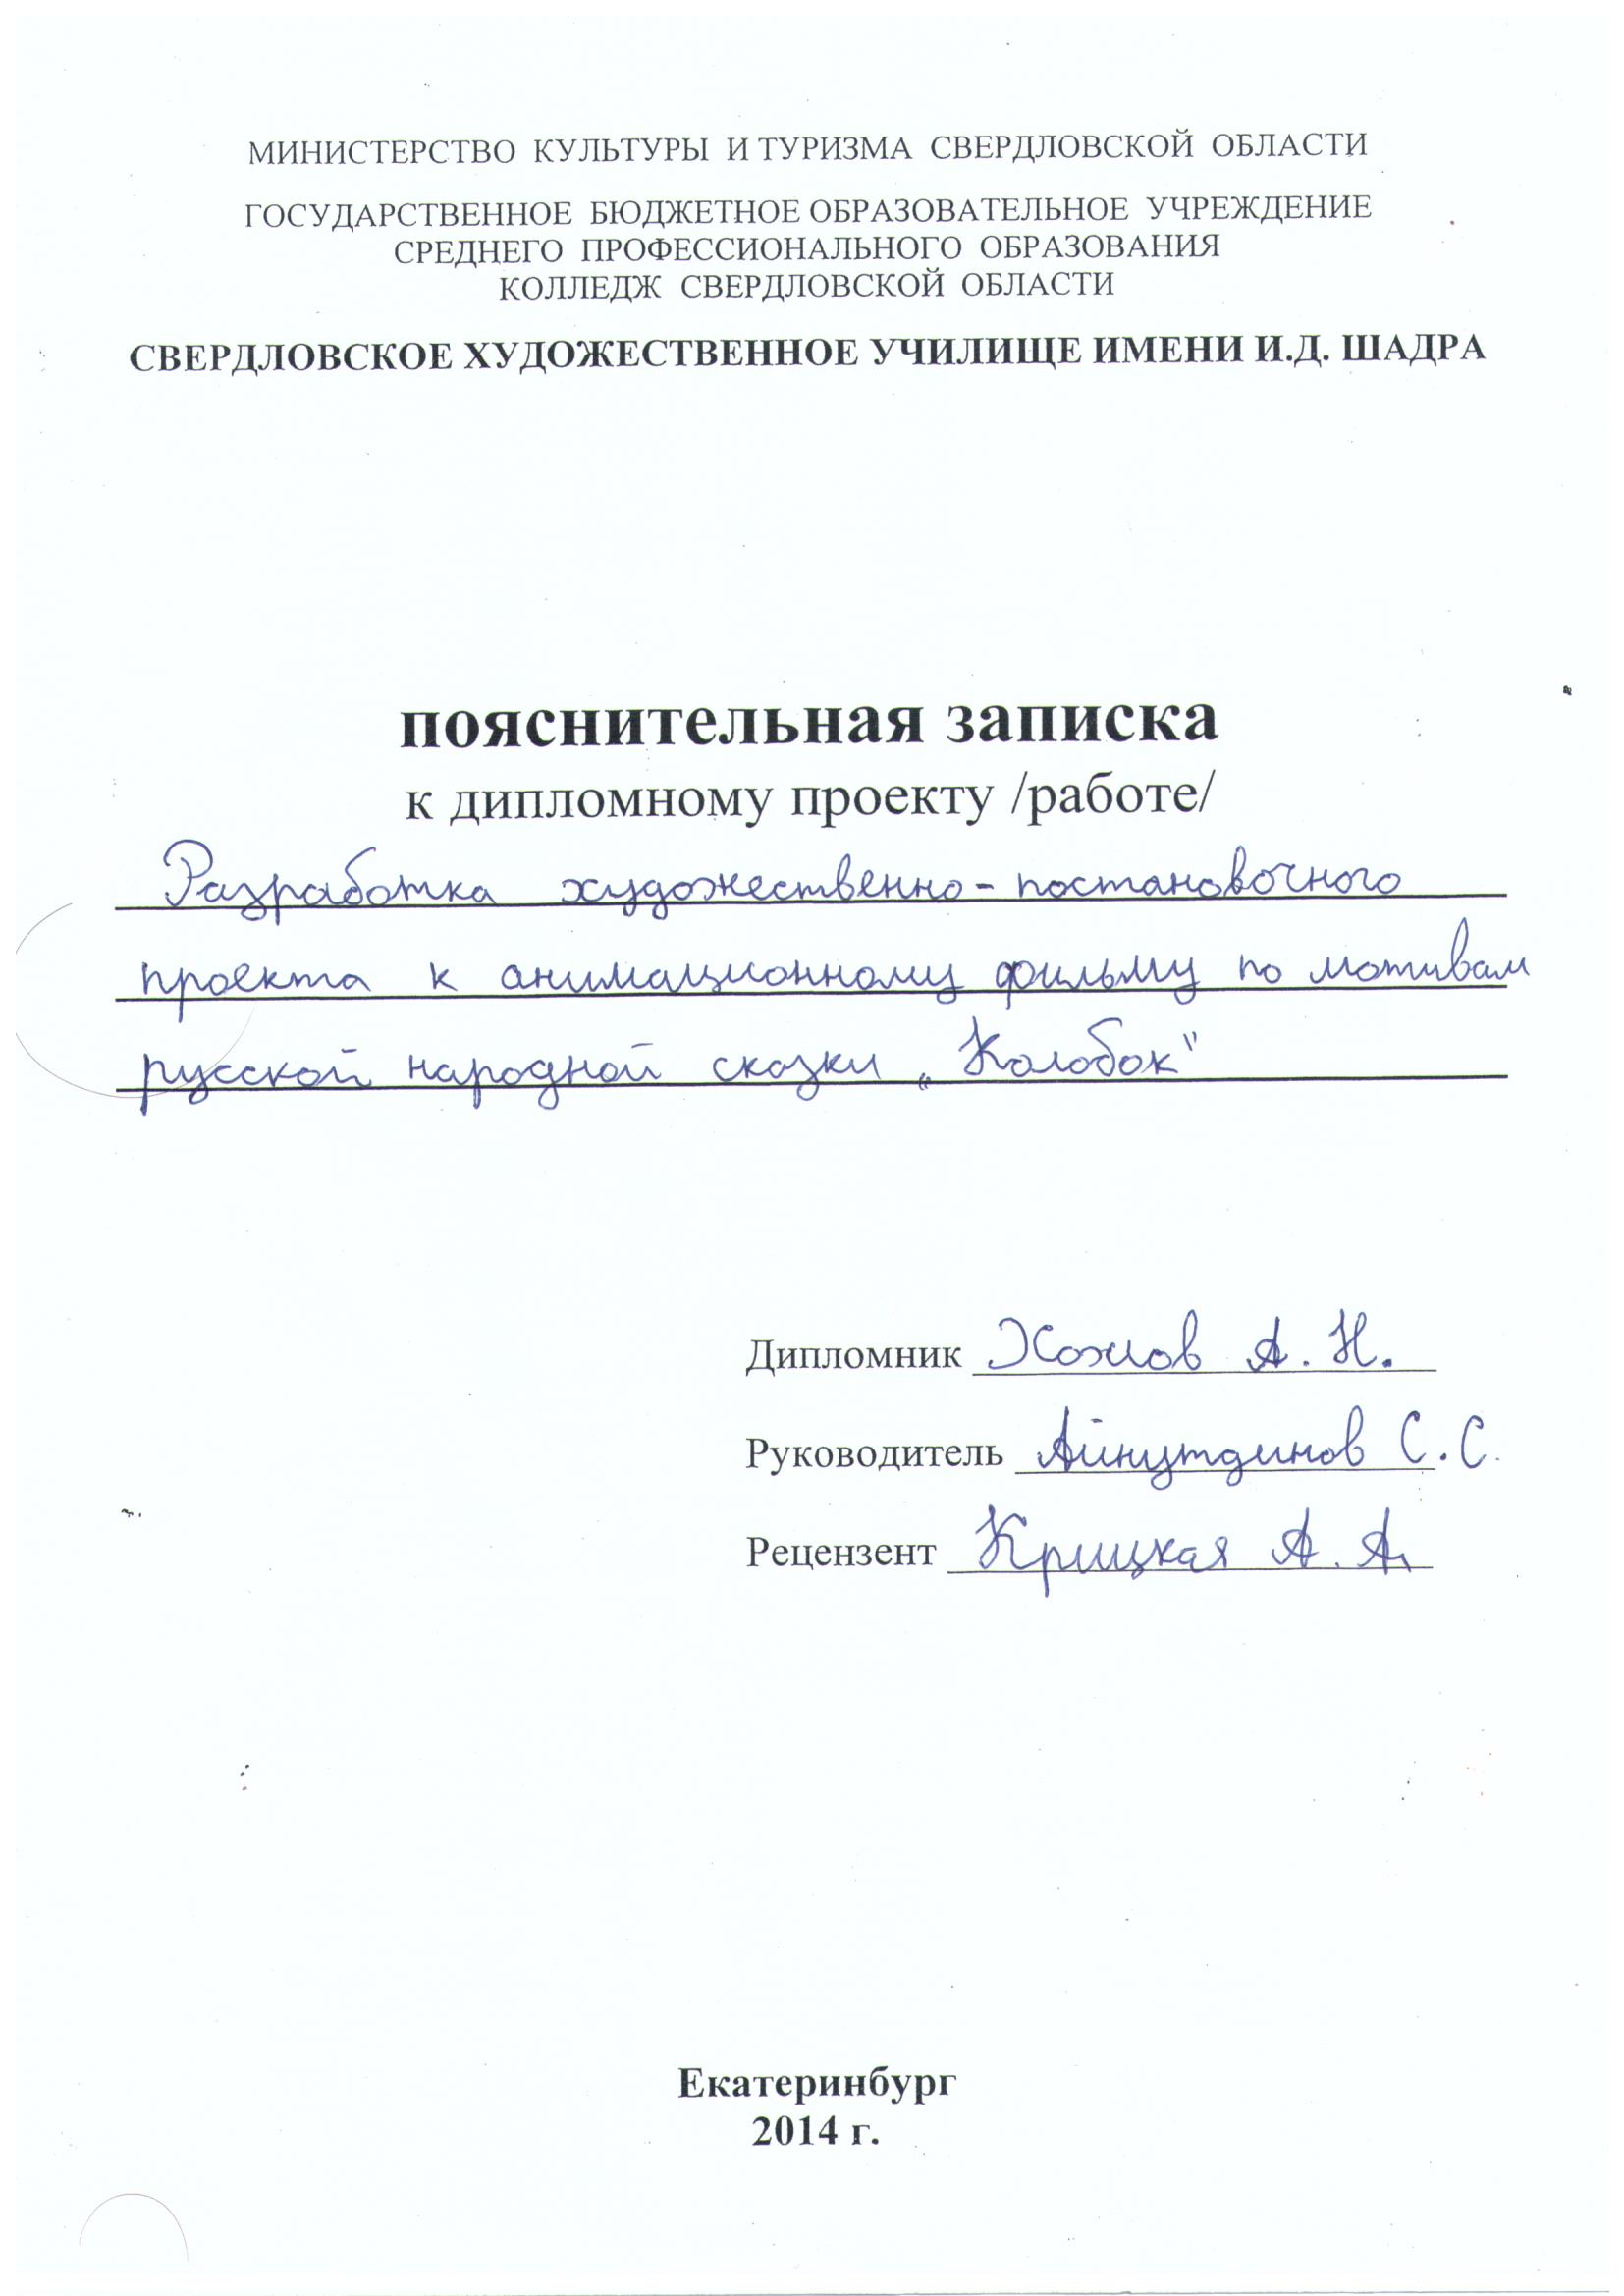 МИНИСТЕРСТВО КУЛЬТУРЫ И ТУРИЗМА СВЕРДЛОВСКОЙ ОБЛАСТИ
ГОСУДАРСТВЕННОЕ БЮДЖЕТНОЕ ОБРАЗОВАТЕЛЬНОЕ УЧРЕЖДЕНИЕ
СРЕДНЕГО ПРОФЕССИОНАЛЬНОГО ОБРАЗОВАНИЯ
КОЛЛЕДЖ СВЕРДЛОВСКОЙ ОБЛАСТИ
СВЕРДЛОВСКОЕ ХУДОЖЕСТВЕННОЕ УЧИЛИЩЕ ИМЕНИ И.Д. ШАДРА
пояснительная записка
к дипломному проекту /работе/
Разработка художественно-постановочного
проекта к анимационному фильму по мотивам
русской народной сказки „Колобок“
Дипломник А. Н.
Руководитель Айнутдинов С. С.
Рецензент Крицкая А. А.
Екатеринбург
2014 г.